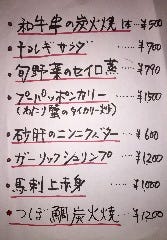 ・和牛串の炭火焼 1本 ¥500
・干ししぎサラダ ¥700
・旬野菜のセイロ蒸 ¥790
・プーパッポンカリー ¥1500
(わたり蟹のタイカリー炒め)
・砂肝のニンニクバター ¥600
・ガーリックシュリンプ ¥1200
・馬刺上赤身 ¥1000
・つぼ鯛炭火焼 ¥1200